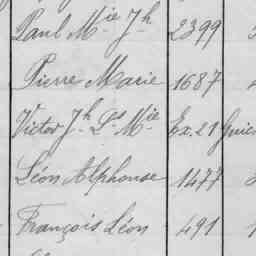 Paul Mie Jh 2399
Pierre Marie 1687
Victor Jh Ls Mie Ex. 21
Léon Alphonse 1477
François Léon 491